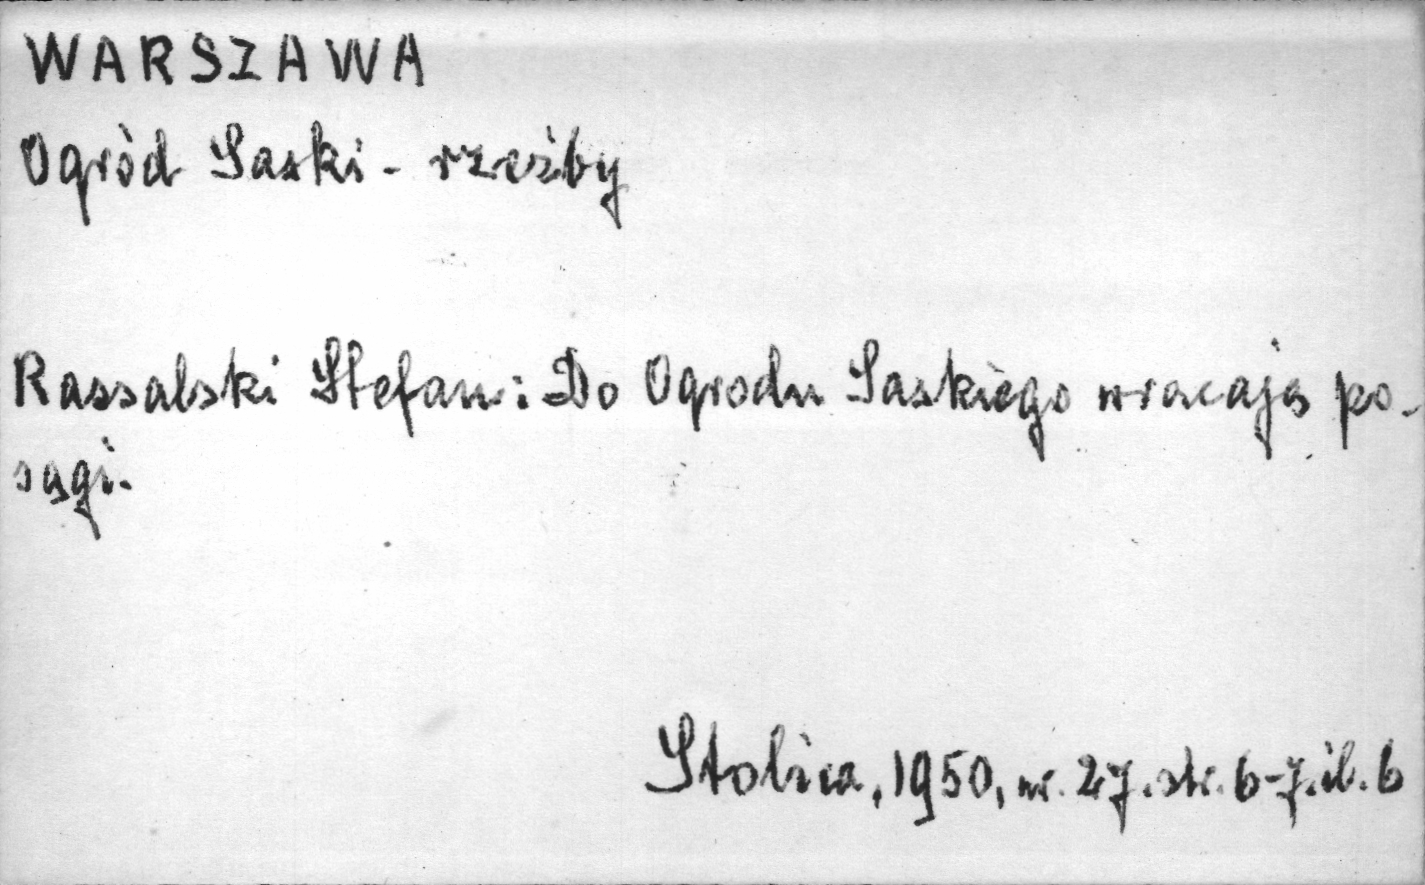 WARSZAWA
Ogród Saski - rzeźby
Rassalski Stefan: Do Ogrodu Saskiego wracają po-
sągi.
Stolica, 1950, nr. 27. str. 6-7. il. 6